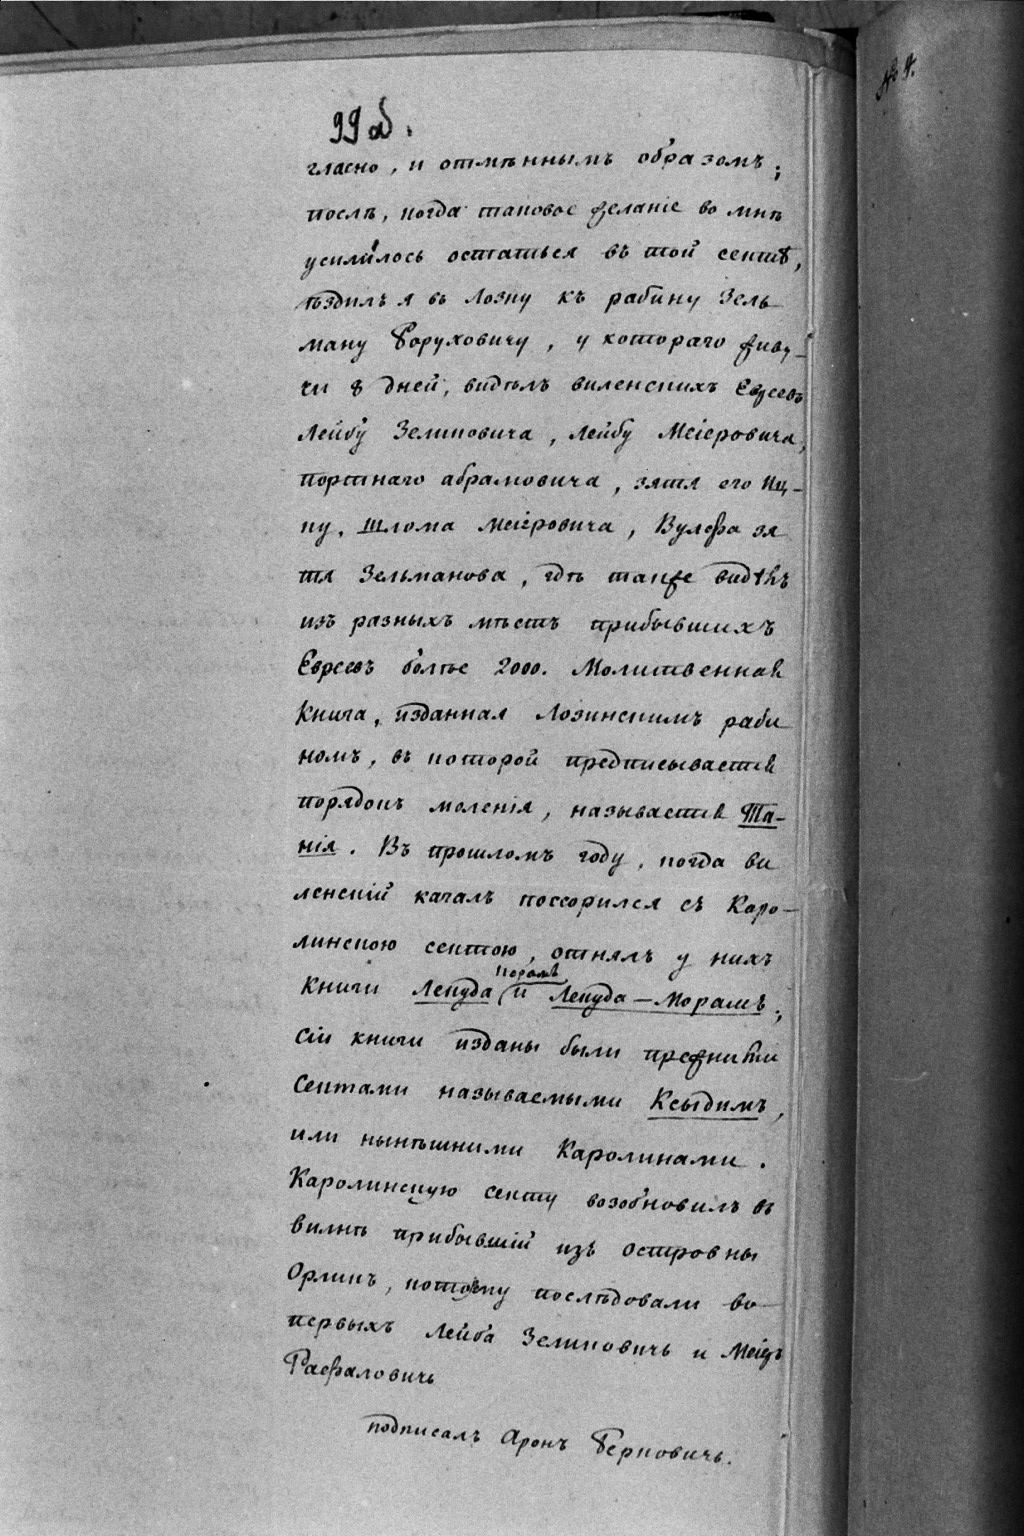 99 об.
№ 4.
гласно, и отмѣннымъ образомъ;
послѣ, когда таковое желаніе во мнѣ
усилилось остаться въ той сектѣ,
ѣздилъ я въ Лозну къ рабину Зель
ману Боруховичу, у котораго живу-
чи 8 дней, видѣлъ виленскихъ Евреевъ
Лейбу Зеликовича, Лейбу Меіеровича,
портнаго абрамовича, зятя его Иц-
ку, Шлома Меіеровича, Вулефа зя
тя Зельманова, гдѣ также видѣлъ
изъ разныхъ мѣстъ прибывшихъ
Евреевъ болѣе 2000. Молитвенная
Книга, изданная Лозинскимъ раби
номъ, въ которой предписывается
порядокъ моленія, называется Та-
нія. Въ прошломъ году, когда ви
ленскій кагалъ поссорился съ Каро-
линскою сектою, отнялъ у нихъ
книги Лекуда Порамъ и Лекуда-Морамъ;
Сіи книги изданы были прежними
Сектами называемыми Ксыдимъ,
или нынѣшними Каролинами.
Каролинскую секту возобновилъ въ
вильнѣ прибывшій изъ островны
Орликъ, которому послѣдовали во
первыхъ Лейба Зеликовичъ и Меіеръ
Рафаловичъ
подписалъ Аронъ Берковичъ.